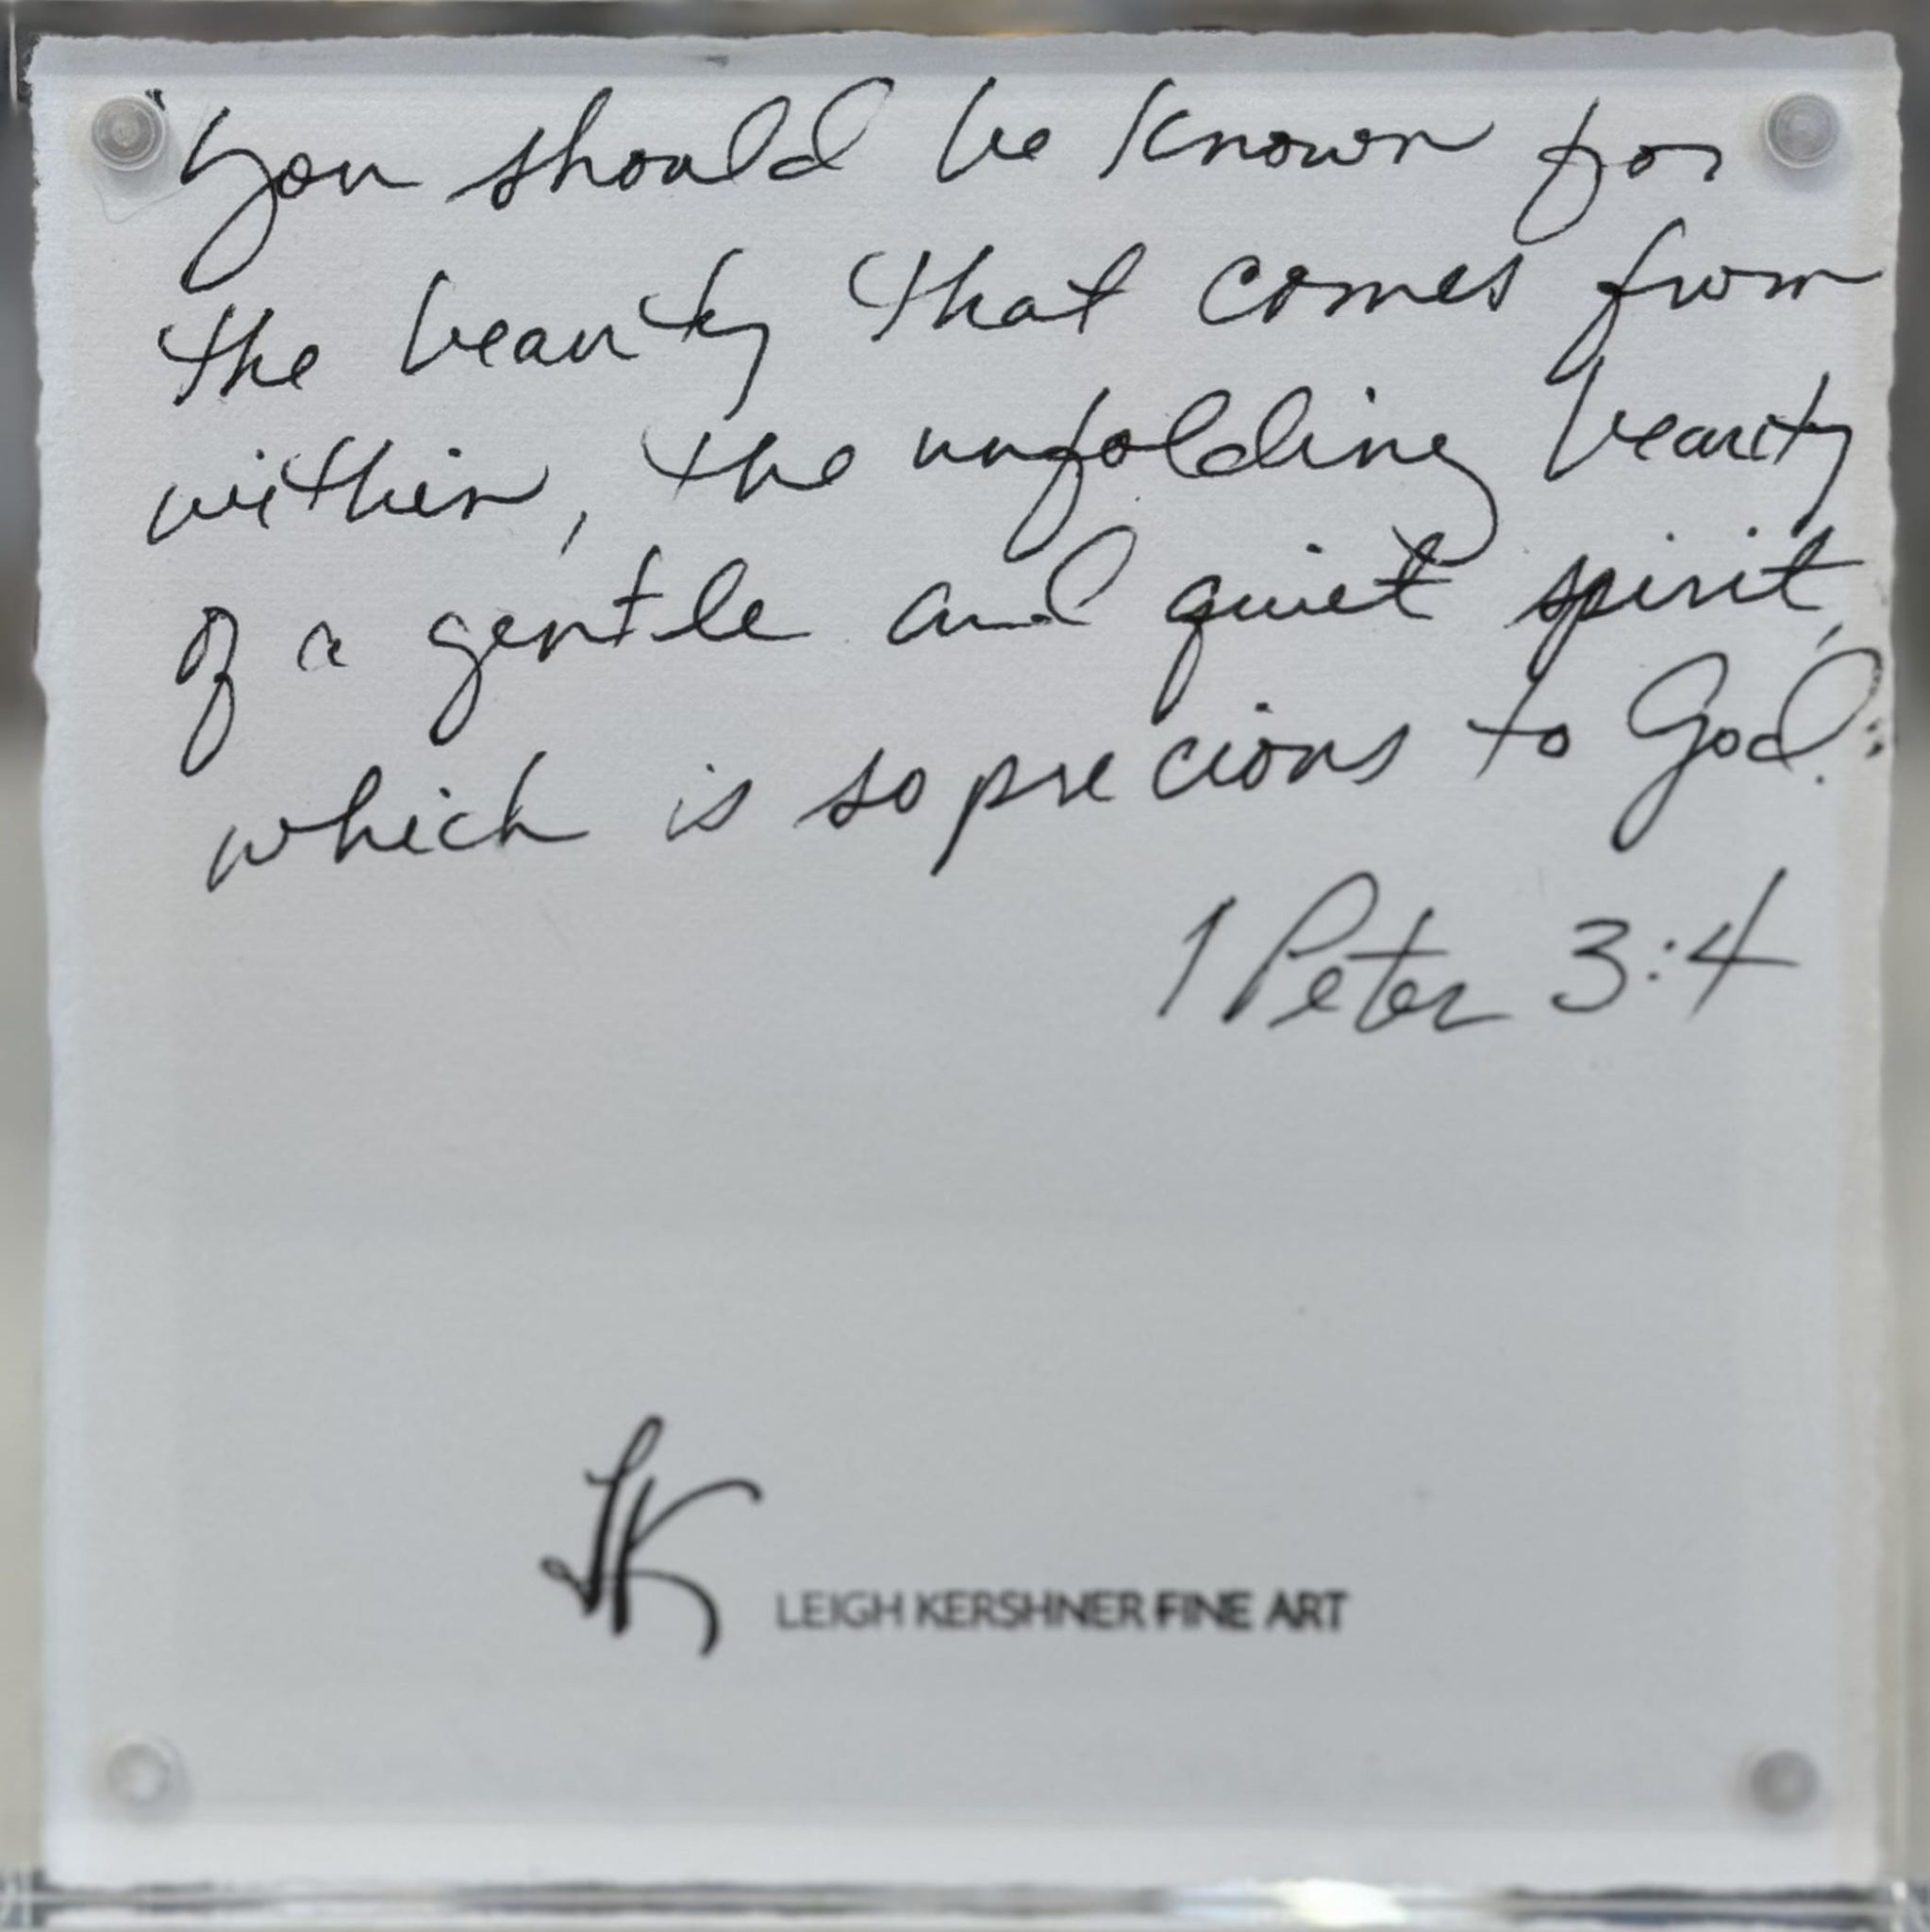 "You should be known for
the beauty that comes from
within, the unfolding beauty
of a gentle and quiet spirit,
which is so precious to God."
1 Peter 3:4
LK LEIGH KERSHNER FINE ART